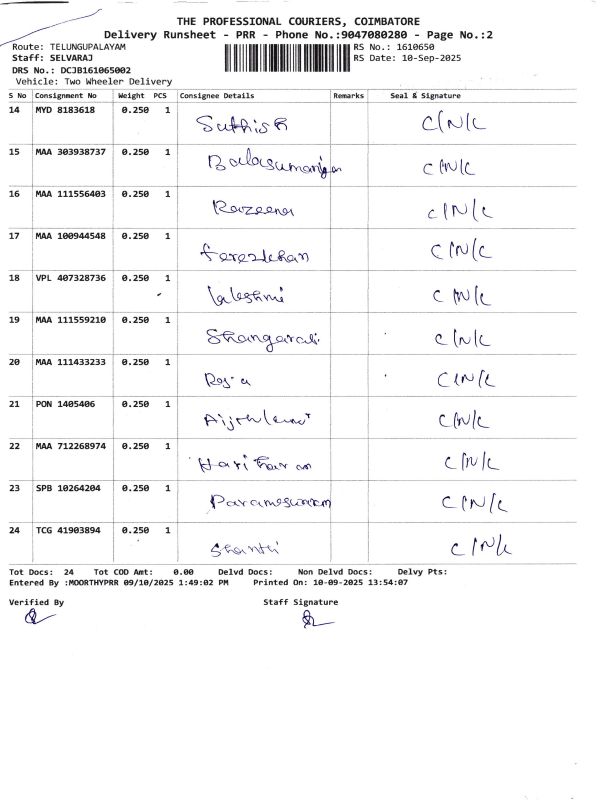 THE PROFESSIONAL COURIERS, COIMBATORE
Delivery Runsheet - PRR - Phone No.:9047080280 - Page No.:2
Route: TELUNGUPALAYAM RS No.: 1610650
Staff: SELVARAJ RS Date: 10-Sep-2025
DRS No.: DCJB161065002
Vehicle: Two Wheeler Delivery
S No Consignment No Weight PCS Consignee Details Remarks Seal & Signature
14 MYD 8183618 0.250 1 Suthish C/N/C
15 MAA 303938737 0.250 1 C/N/C
16 MAA 111556403 0.250 1 Razeena C/N/C
17 MAA 100944548 0.250 1 C/N/C
18 VPL 407328736 0.250 1 C/N/C
19 MAA 111559210 0.250 1 C/N/C
20 MAA 111433233 0.250 1 C/N/C
21 PON 1405406 0.250 1 C/N/C
22 MAA 712268974 0.250 1 Hariharan C/N/C
23 SPB 10264204 0.250 1 C/N/C
24 TCG 41903894 0.250 1 Shanthi C/N/C
Tot Docs: 24 Tot COD Amt: 0.00 Delvd Docs: Non Delvd Docs: Delvy Pts:
Entered By :MOORTHYPRR 09/10/2025 1:49:02 PM Printed On: 10-09-2025 13:54:07
Verified By Staff Signature